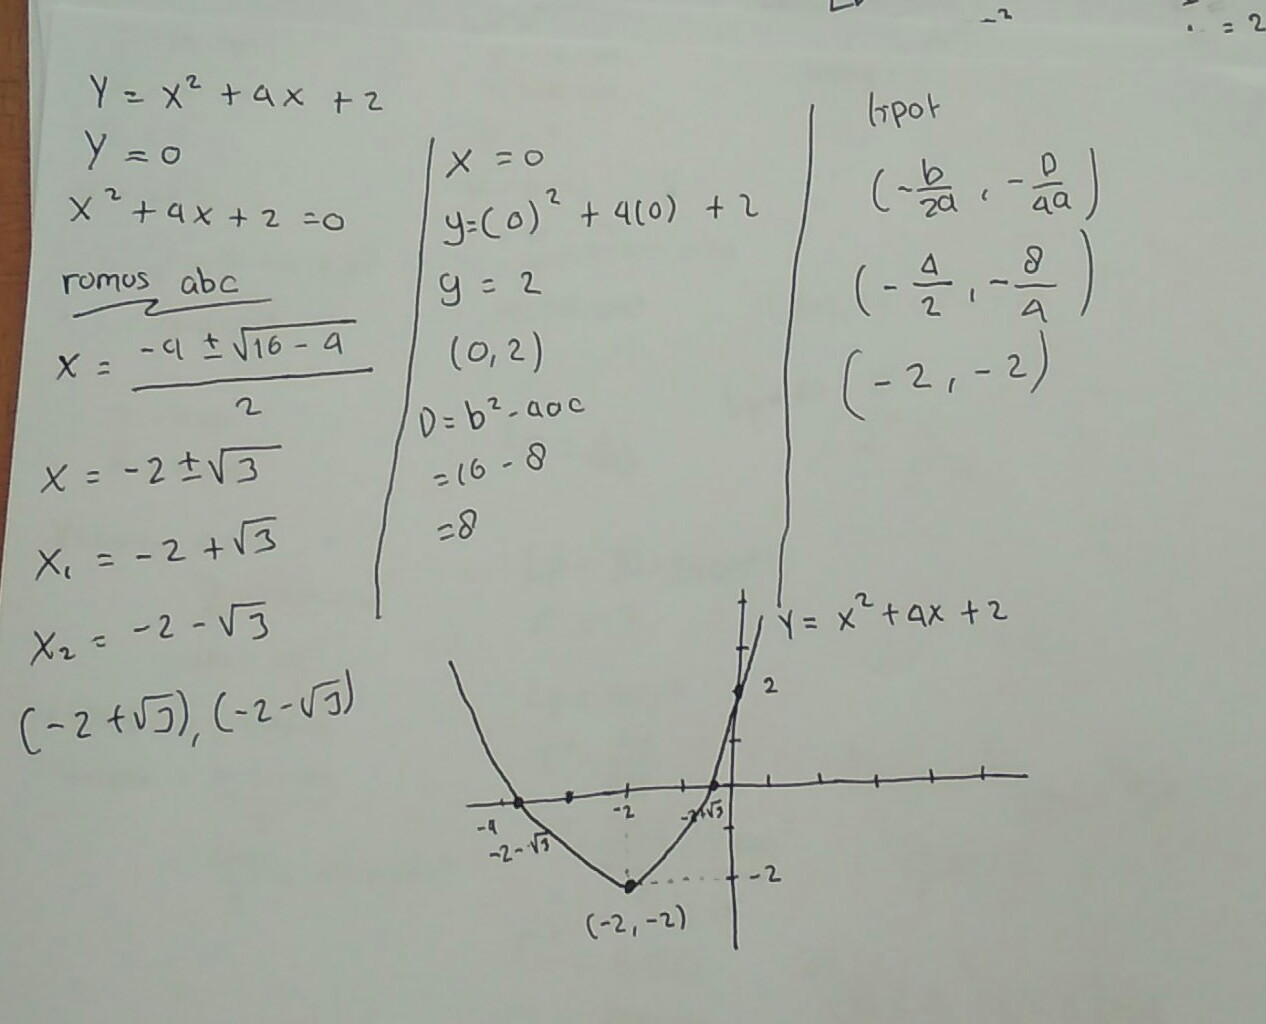 -2
= 2
Y = x² + 4x + 2
Y = 0
x² + 4x + 2 = 0
romus abc
x = (-4 ± √(16 - 4)) / 2
x = -2 ± √3
x₁ = -2 + √3
x₂ = -2 - √3
(-2 + √3), (-2 - √3)
x = 0
y = (0)² + 4(0) + 2
y = 2
(0, 2)
D = b² - 4ac
= 16 - 8
= 8
(-b/2a, -D/4a)
(-4/2, -8/4)
(-2, -2)
Y = x² + 4x + 2
2
-4
-2-√3
-2
-2+√3
-2
(-2, -2)